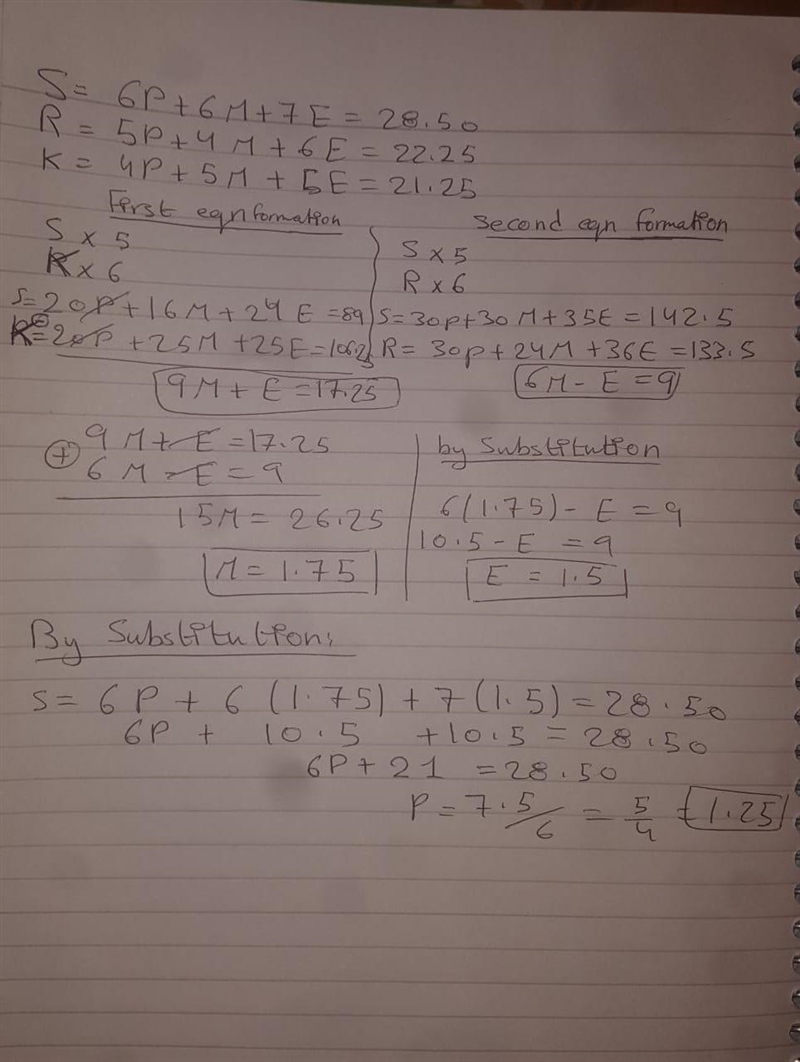 S = 6P + 6M + 7E = 28.50
R = 5P + 4M + 6E = 22.25
K = 4P + 5M + 5E = 21.25
First eqn formation
S x 5
R x 6
S = 20P + 16M + 24E = 89
K = 20P + 25M + 25E = 106.25
9M + E = 17.25
Second eqn formation
S x 5
R x 6
S = 30p + 30M + 35E = 142.5
R = 30p + 24M + 36E = 133.5
6M - E = 9
+ 9M + E = 17.25
6M - E = 9
15M = 26.25
M = 1.75
by Substitution
6(1.75) - E = 9
10.5 - E = 9
E = 1.5
By Substitution:
S = 6P + 6(1.75) + 7(1.5) = 28.50
6P + 10.5 + 10.5 = 28.50
6P + 21 = 28.50
P = 7.5/6 = 5/4 = 1.25